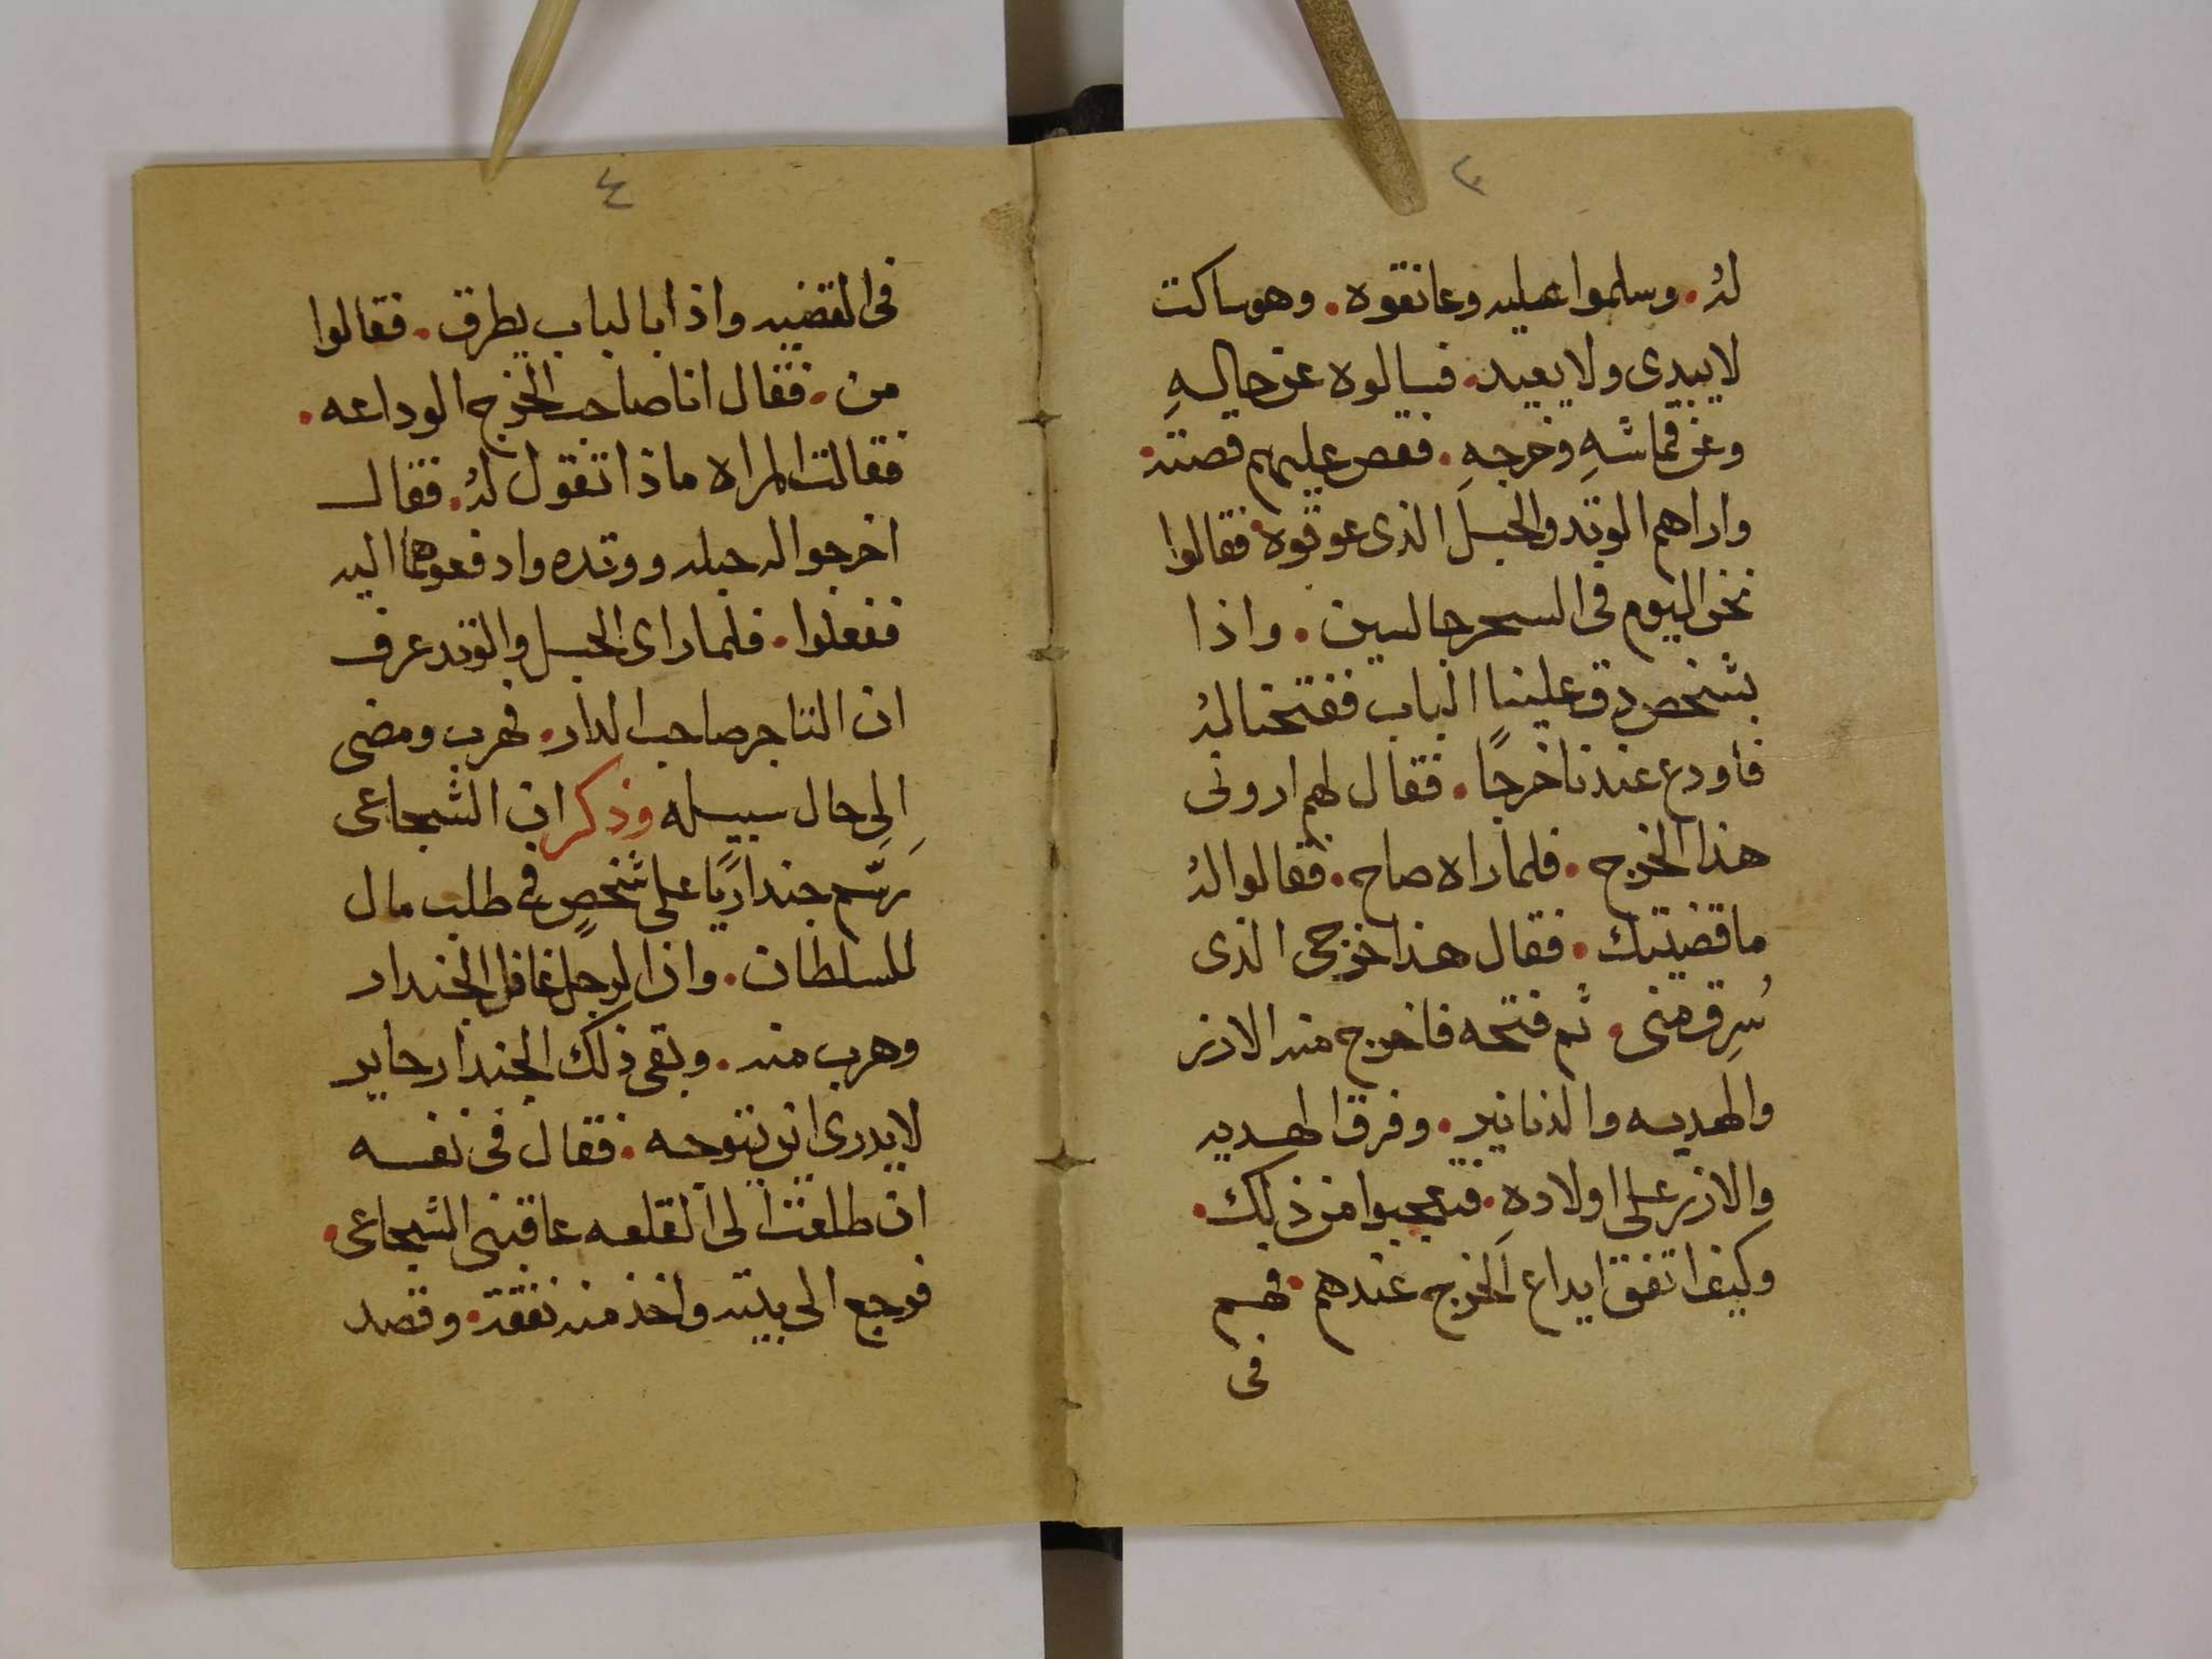 ٣
له . وسلموا عليه وعانقوه . وهو ساكت
لا يبدى ولا يعيد . فسالوه عن حالهِ
وعن قماشهِ وخرجهِ . فقص عليهم قصته .
واراهم الوتد والحبل الذى عوقوه . فقالوا
نحن اليوم فى السحر جالسين . واذا
بشخص دق علينا الباب ففتحنا لهُ
فاودع عندنا خرجًا . فقال لهم ارونى
هذا الخرج . فلما راه صاح . فقالوا لهُ
ما قضيتك . فقال هذا خرجى الذى
سُرِق منى . ثم فتحه فاخرج منه الازر
والهديه والدنانير . وفرق الهديه
والازر على اولادهِ . فتعجبوا من ذلك .
وكيف اتفق ايداع الخرج عندهم . فهم
فى
٤
فى القضيه واذا بالباب يطرق . فقالوا
من . فقال انا صاحب الخرج الوداعه .
فقالت المراه ماذا تقول لهُ . فقال
اخرجوا له حبله ووتده وادفعوهما اليه
ففعلوا . فلما راى الحبل والوتد عرف
ان التاجر صاحب الدار . فهرب ومضى
اِلى حال سبيله وذكر ان الشجاعى
رسّم جنداريًا على شخصٍ فى طلب مال
للسلطان . وان الرجل غافل الجندار
وهرب منه . وبقى ذلك الجندار حاير
لا يدرى اين يتوجه . فقال فى نفسه
ان طلعت الى القلعه عاقبنى الشجاعى .
فرجع الى بيته واخذ منه نفقة . وقصد